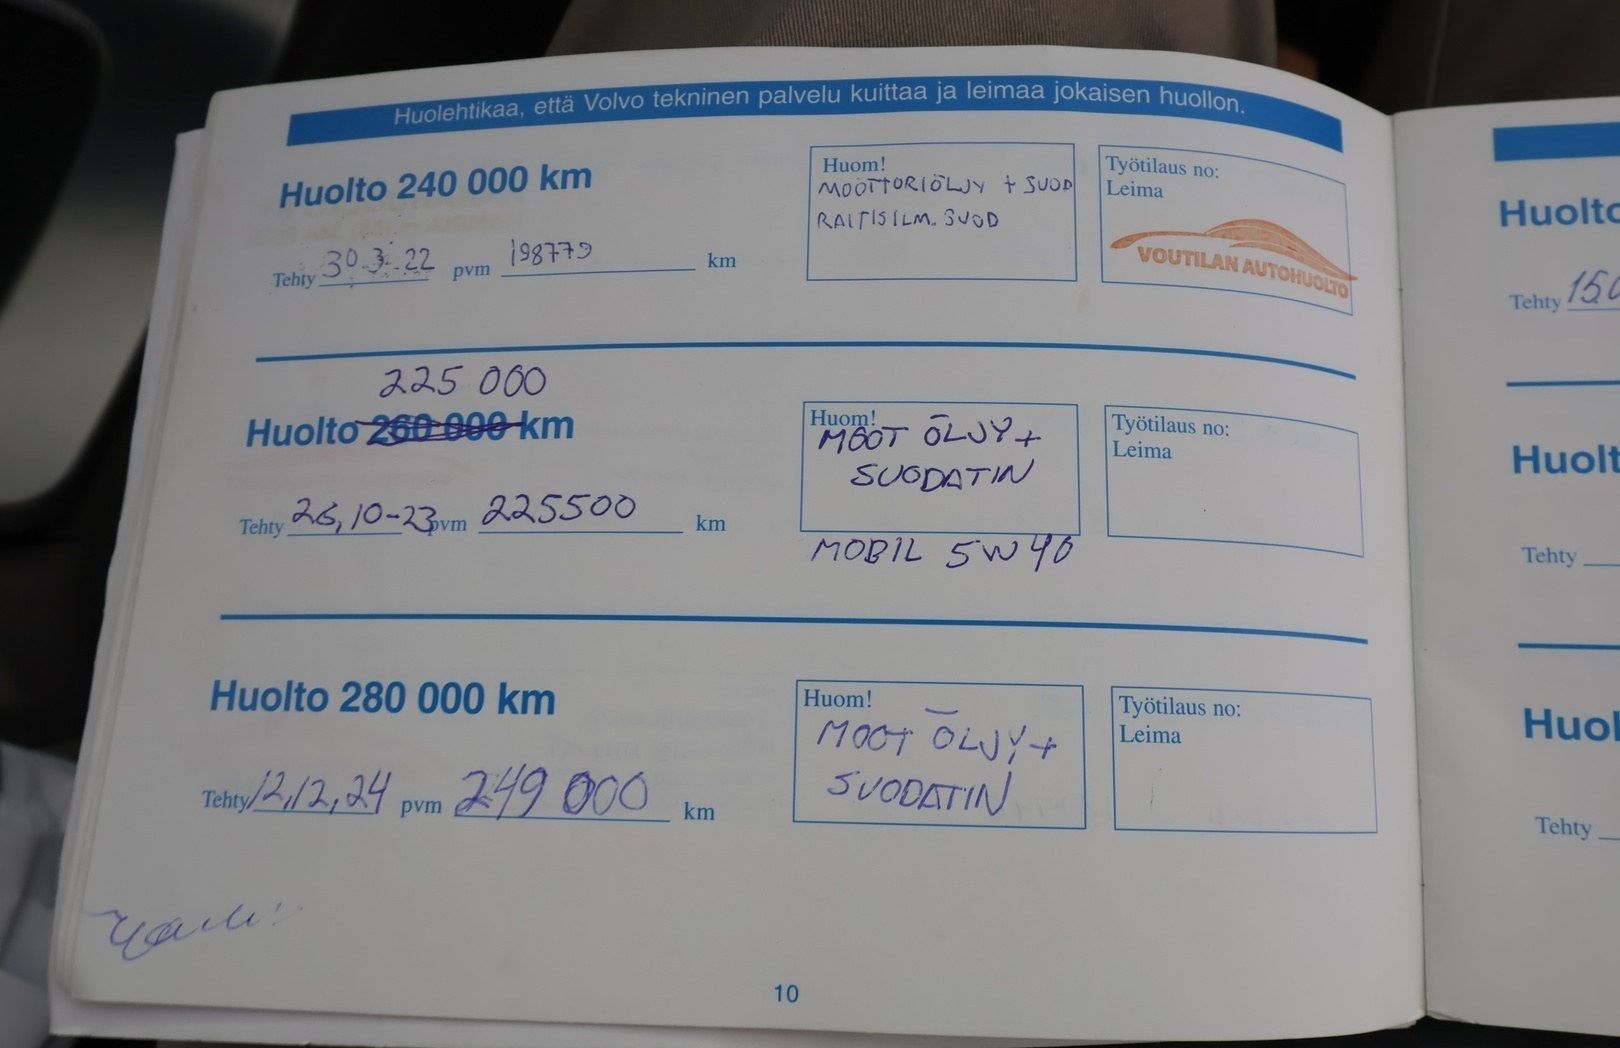 Huolehtikaa, että Volvo tekninen palvelu kuittaa ja leimaa jokaisen huollon.
Huolto 240 000 km
Tehty 30.3.22 pvm 198779 km
Huom!
MOOTTORIÖLJY + SUOD
RAITISILM. SUOD
Työtilaus no:
Leima
VOUTILAN AUTOHUOLTO
225 000
Huolto 260 000 km
Tehty 26,10-23 pvm 225500 km
Huom!
MOOT ÖLJY +
SUODATIN
MOBIL 5W40
Työtilaus no:
Leima
Huolto 280 000 km
Tehty 12,12,24 pvm 249 000 km
Huom!
MOOT ÖLJY +
SUODATIN
Työtilaus no:
Leima
10
Tehty
Tehty
Tehty